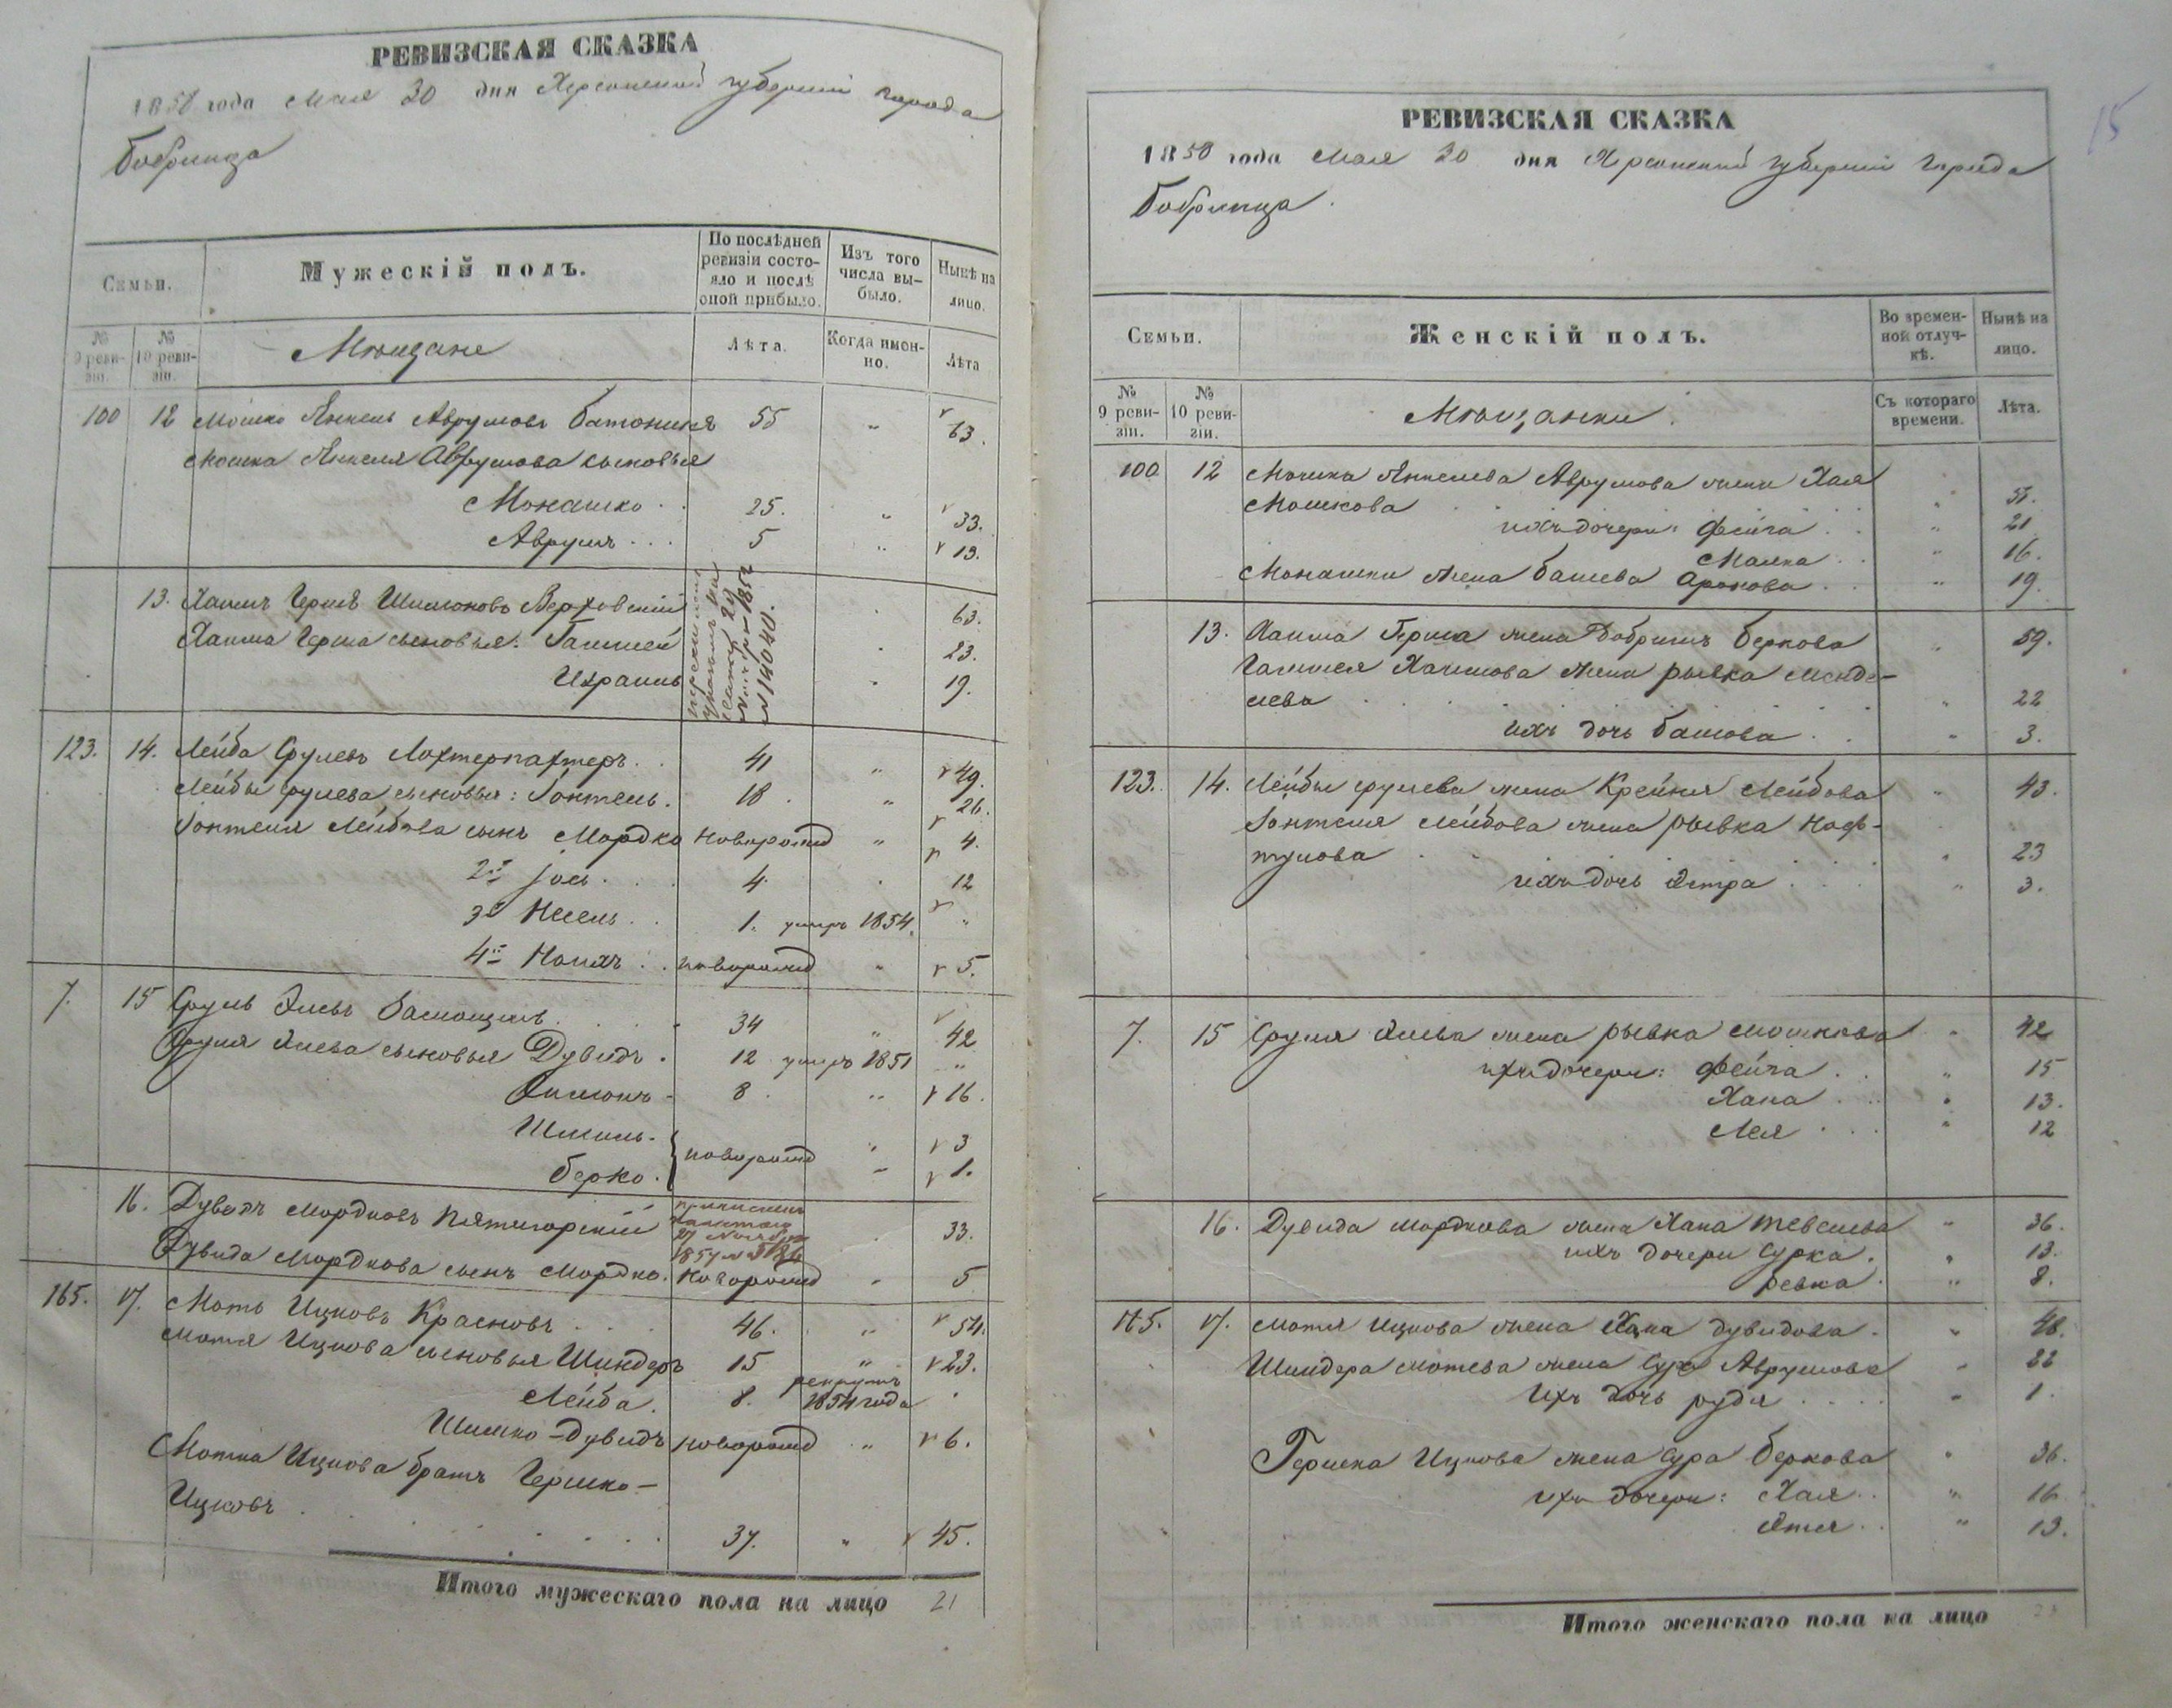 РЕВИЗСКАЯ СКАЗКА
1858 года Мая 30 дня Херсонской губернии города
Бобринца
Семьи.
Мужескій полъ.
По послѣдней ревизіи состояло и послѣ оной прибыло.
Изъ того числа выбыло.
Нынѣ на лицо.
№ 9 ревизіи.
№ 10 ревизіи.
Мещане
Лѣта.
Когда именно.
Лѣта
100 12 Мошко Янкель Аврумовъ 55 " 63.
Мошка Янкеля Аврумова сыновья
Монашко . . 25. " 33.
Аврумъ . . . 5 " 13.
13. Хаимъ Гершъ Шимоновъ Верховскій 63.
Хаима Герша сыновья: Гашшей 23.
Израиль 19.
№ 14040.
123. 14. Лейба Срулевъ Лохтерпахтеръ . . 41 " 49.
Лейбы Срулева сыновья: Іонтель. 18. " 26.
Іонтеля Лейбова сынъ Мордко новорожд " 4.
2й Іось . . . 4. 12
3й Несель . . 1. умеръ 1854. "
4й Нохихъ . . новорожд " 5.
7. 15 Сруль Элевъ . . . 34 " 42
Сруля Элева сыновья Дувидъ . 12 умеръ 1851 "
Шимонъ . 8. " 16.
Шмиль. " 3
Берко. новорожд " 1.
16. Дувидъ Мордковъ Пятигорскій 33.
Дувида Мордкова сынъ Мордко. новорожд " 5
165. 17. Мотъ Ицковъ Красновъ . . . 46. " 54.
Мотя Ицкова сыновья Шиндеръ 15 " 23.
Лейба. 8. рекрутъ 1854 года
Шимко-Дувидъ новорожд " 6.
Мотка Ицкова братъ Гершко-
Ицковъ . . . . 37. " 45.
Итого мужескаго пола на лицо 21
15
РЕВИЗСКАЯ СКАЗКА
1858 года Мая 30 дня Херсонской губерніи города
Бобринца.
Семьи.
Женскій полъ.
Во временной отлучкѣ.
Нынѣ на лицо.
№ 9 ревизіи.
№ 10 ревизіи.
Мещанки.
Съ котораго времени.
Лѣта.
100 12 Мошка Янкелева Аврумова жена Хая
Мошкова . . . " 55.
ихъ дочери: Фейга . . " 21
Малка . . " 16.
Монашки жена Башева Аронова . . " 19.
13. Хаима Герша жена Добришъ Беркова " 59.
Гашшея Хаимова жена Рывка Менде-
лева . . . . " 22
ихъ дочь Башова . . " 3.
123. 14. Лейбы Срулева жена Крейня Лейбова " 43.
Іонтеля Лейбова жена Рывка Наф-
тулова . . . . " 23
ихъ дочь Эстра . . . " 3.
7. 15 Сруля Элева жена Рывка Мошкова " 42
ихъ дочери: Фейга . . " 15
Хана . . . " 13.
Лея . . . " 12
16. Дувида Мордкова жена Хана Тевелева " 36.
ихъ дочери Сурка . " 13.
Ревка . " 8.
165. 17. Мотя Ицкова жена Хана Дувидова . " 48.
Шиндера Мотева жена Сура Аврумова " 22
ихъ дочь Рудя . . . . " 1.
Гершка Ицкова жена Сура Беркова " 36.
ихъ дочери: Хая . . " 16
Этля . . " 13.
Итого женскаго пола на лицо